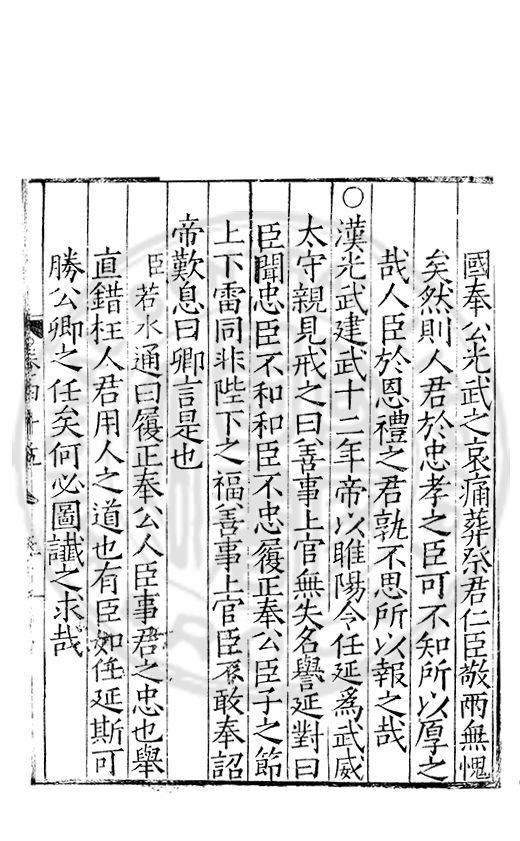 國奉公光武之哀痛葬祭君仁臣敬兩無愧
矣然則人君於忠孝之臣可不知所以厚之
哉人臣於恩禮之君孰不思所以報之哉
○漢光武建武十二年帝以睢陽令任延爲武威
太守親見戒之曰善事上官無失名譽延對曰
臣聞忠臣不和和臣不忠履正奉公臣子之節
上下雷同非陛下之福善事上官臣不敢奉詔
帝歎息曰卿言是也
臣若水通曰履正奉公人臣事君之忠也舉
直錯枉人君用人之道也有臣如任延斯可
勝公卿之任矣何必圖讖之求哉